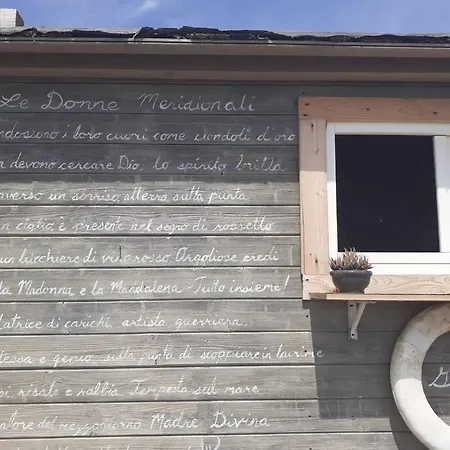 Le Donne Meridionali
ndossono i loro cuori come ciondoli d'oro
n devono cercare Dio, lo spirito brilla
averso un sorriso, atterra sulla punta
n ciglio, è presente nel segno di rossetto
un bicchiere di vino rosso. Orgogliose eredi
la Madonna e la Maddalena - Tutto insieme!
latrice di carichi, artista guerriera,
tessa e genio sulla punta di scoppiare in lacrime
oi, risate e rabbia Tempesta sul mare
atore del mezzogiorno Madre Divina
G